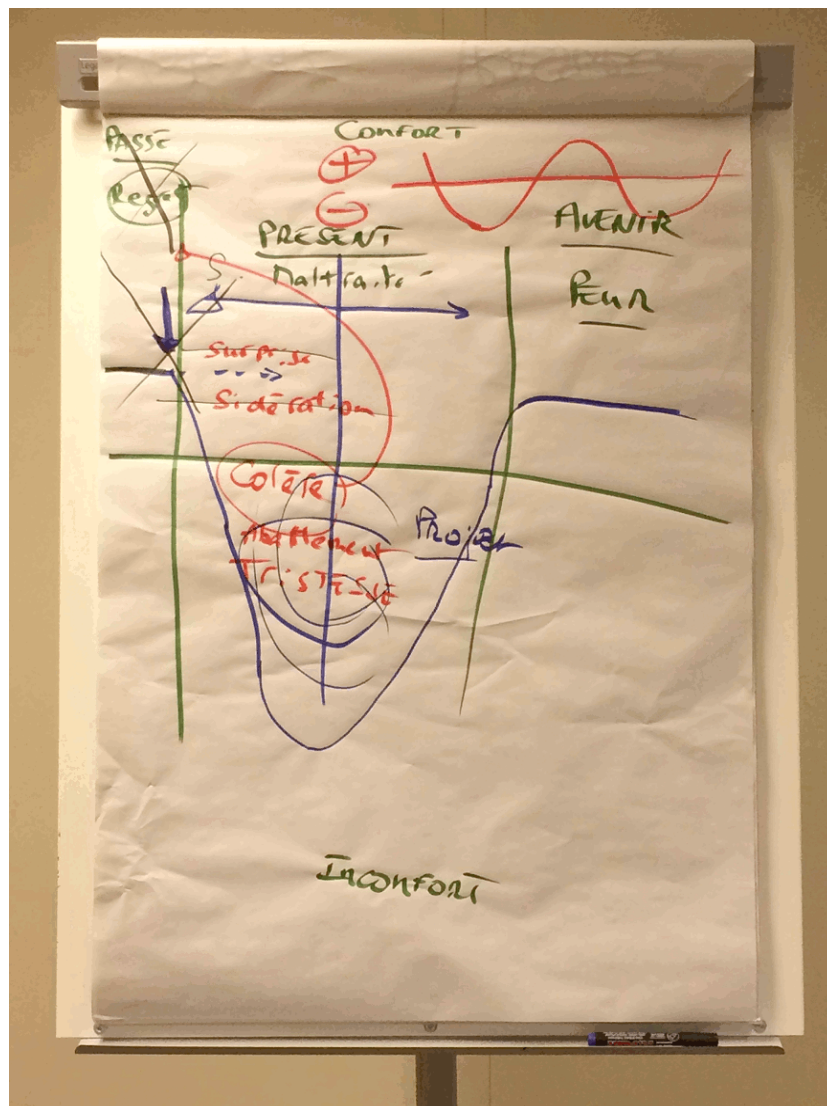 PASSÉ
CONFORT
Regret
+
-
PRESENT
AVENIR
PEUR
S
Surprise
Sidération
Colère
Abattement
Tristesse
Projet
INCONFORT